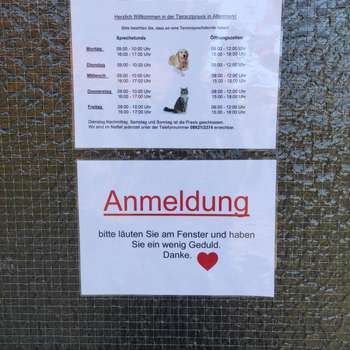 Herzlich Willkommen in der Tierarztpraxis in Altenmarkt
Bitte beachten Sie, dass wir eine Terminsprechstunde haben!
Sprechstunde Öffnungszeiten
Montag 09:00 - 10:00 Uhr 08:00 - 12:00 Uhr
16:00 - 17:00 Uhr 15:00 - 18:00 Uhr
Dienstag 09:00 - 10:00 Uhr 08:00 - 12:00 Uhr
Mittwoch 09:00 - 10:00 Uhr 08:00 - 12:00 Uhr
16:00 - 17:00 Uhr 15:00 - 18:00 Uhr
Donnerstag 09:00 - 10:00 Uhr 08:00 - 12:00 Uhr
16:00 - 17:00 Uhr 15:00 - 18:00 Uhr
Freitag 09:00 - 10:00 Uhr 08:00 - 12:00 Uhr
16:00 - 17:00 Uhr 15:00 - 18:00 Uhr
Dienstag Nachmittag, Samstag und Sonntag ist die Praxis geschlossen.
Wir sind im Notfall jederzeit unter der Telefonnummer erreichbar.
Anmeldung
bitte läuten Sie am Fenster und haben
Sie ein wenig Geduld.
Danke.